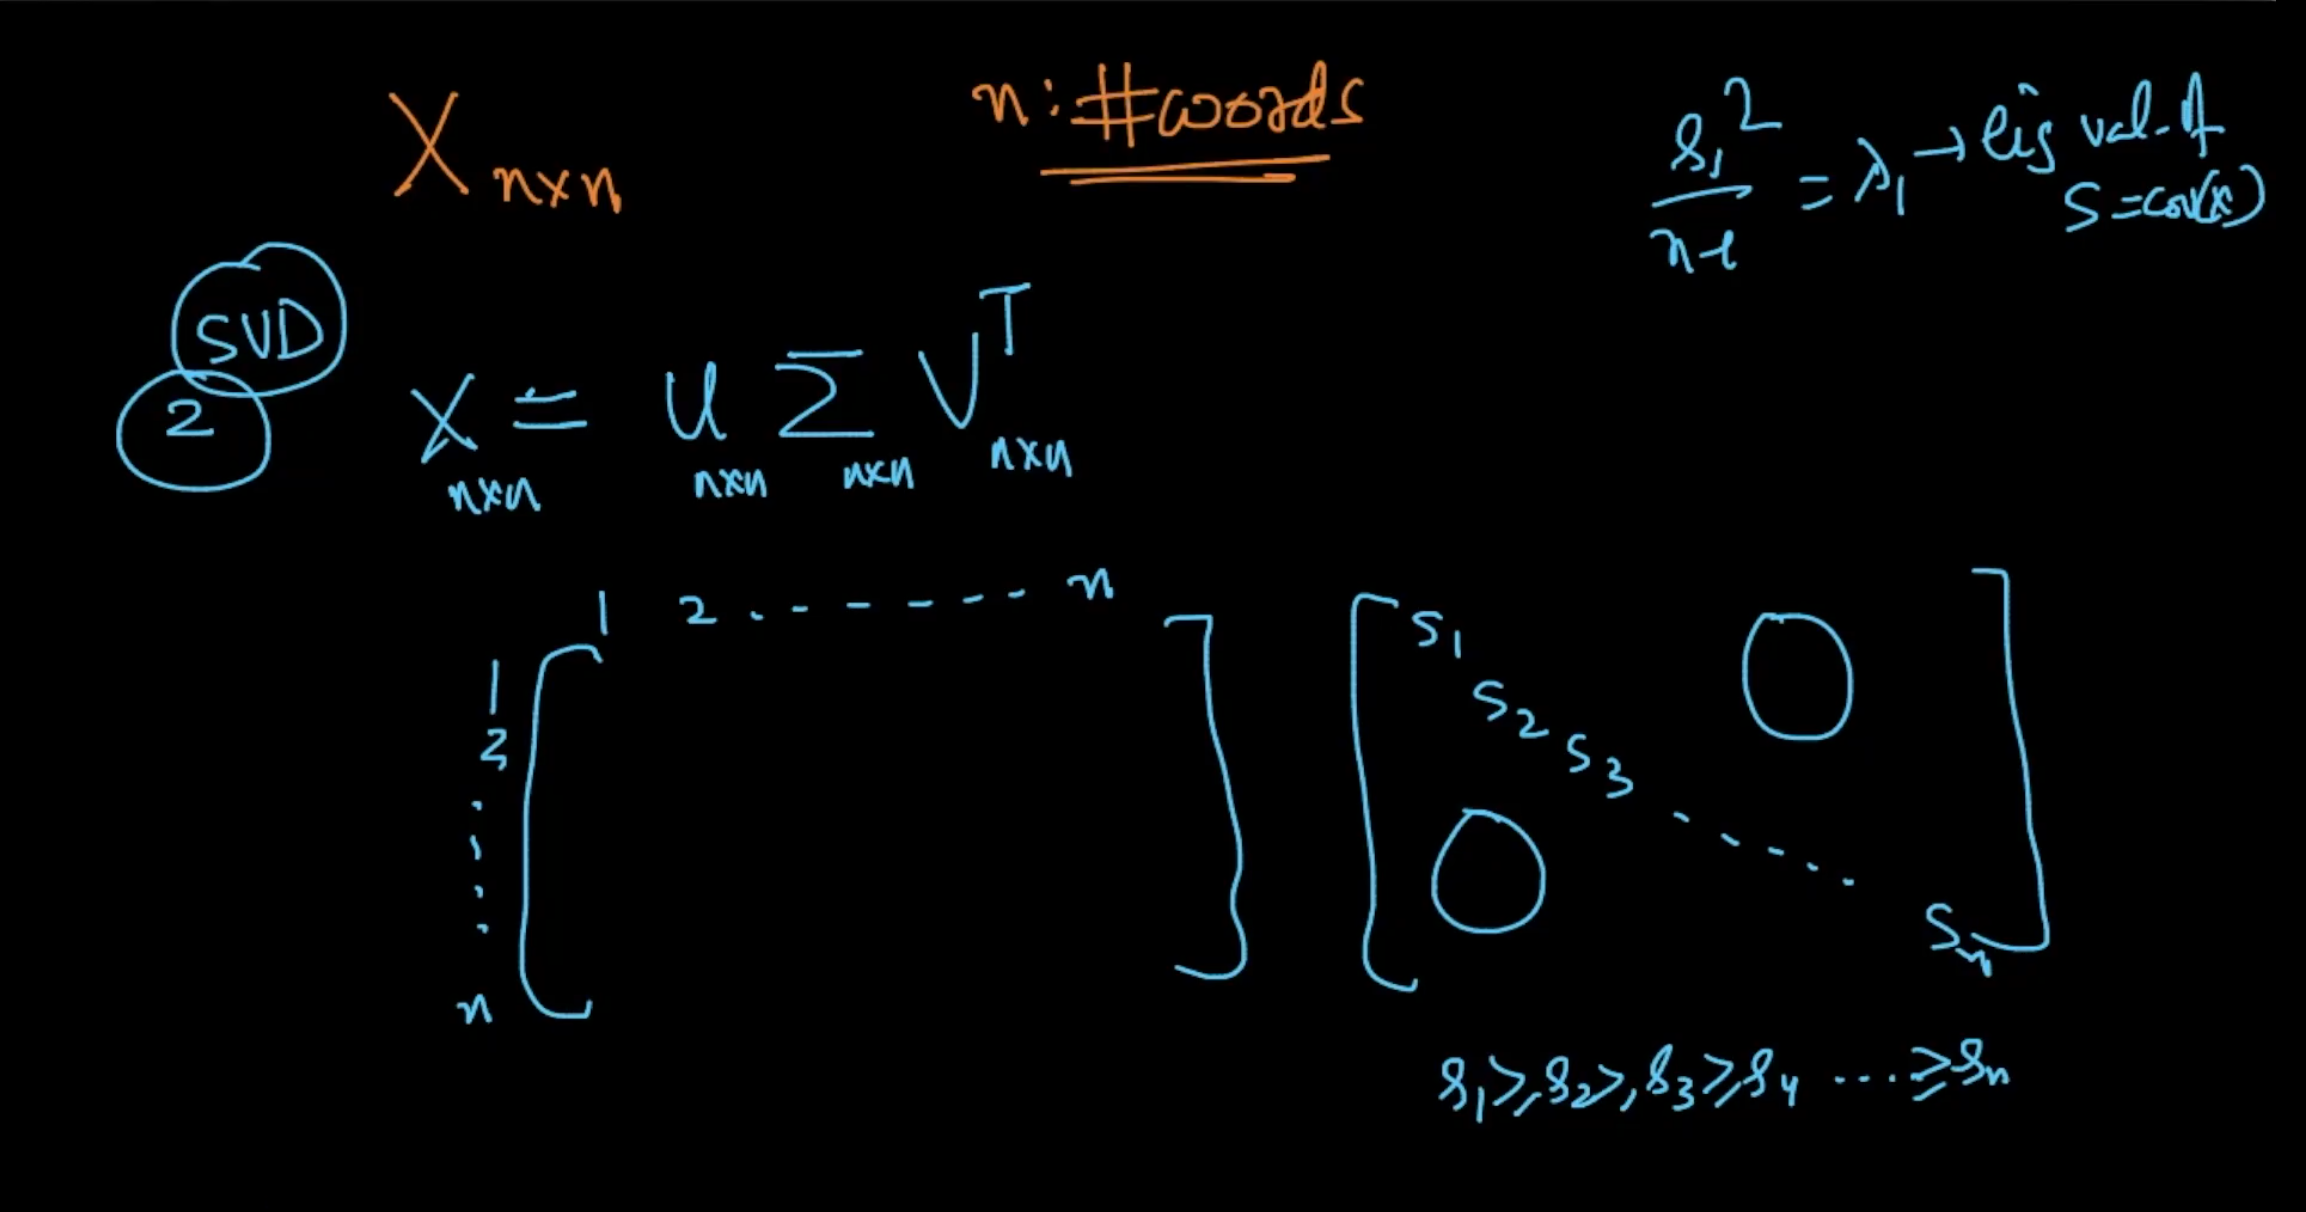 X n×n
n: #words
s₁² / n-1 = λ₁ → eig val. of
S = cov(X)
SVD
2
X n×n = U n×n Σ n×n Vᵀ n×n
1 2 . - - - - - - n
1
2
.
.
.
.
n
s₁
s₂
s₃
. . . . .
sₙ
0
0
s₁ ≥ s₂ ≥ s₃ ≥ s₄ .... ≥ sₙ